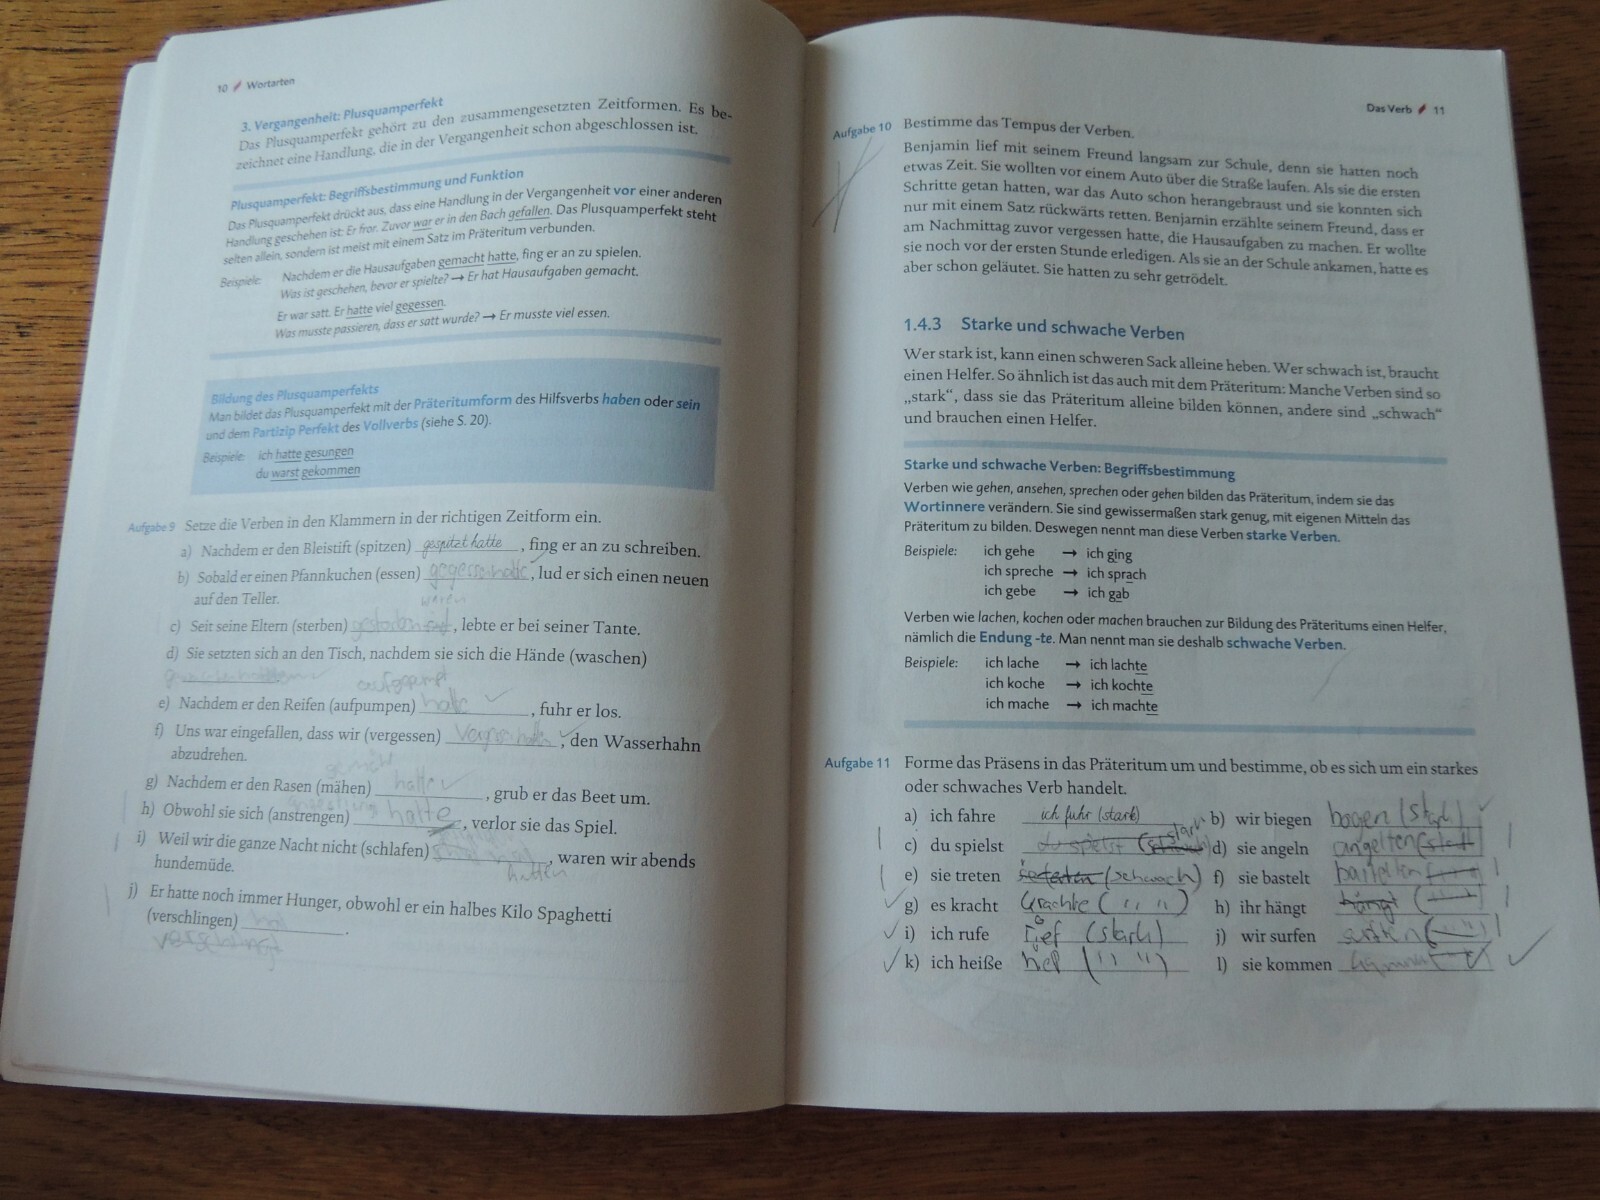 10 Wortarten
3. Vergangenheit: Plusquamperfekt
Das Plusquamperfekt gehört zu den zusammengesetzten Zeitformen. Es be-
zeichnet eine Handlung, die in der Vergangenheit schon abgeschlossen ist.
Plusquamperfekt: Begriffsbestimmung und Funktion
Das Plusquamperfekt drückt aus, dass eine Handlung in der Vergangenheit vor einer anderen
Handlung geschehen ist: Er fror. Zuvor war er in den Bach gefallen. Das Plusquamperfekt steht
selten allein, sondern ist meist mit einem Satz im Präteritum verbunden.
Beispiele: Nachdem er die Hausaufgaben gemacht hatte, fing er an zu spielen.
Was ist geschehen, bevor er spielte? → Er hat Hausaufgaben gemacht.
Er war satt. Er hatte viel gegessen.
Was musste passieren, dass er satt wurde? → Er musste viel essen.
Bildung des Plusquamperfekts
Man bildet das Plusquamperfekt mit der Präteritumform des Hilfsverbs haben oder sein
und dem Partizip Perfekt des Vollverbs (siehe S. 20).
Beispiele: ich hatte gesungen
du warst gekommen
Aufgabe 9 Setze die Verben in den Klammern in der richtigen Zeitform ein.
a) Nachdem er den Bleistift (spitzen) gespitzt hatte, fing er an zu schreiben.
b) Sobald er einen Pfannkuchen (essen) gegessen hatte, lud er sich einen neuen
auf den Teller.
waren
c) Seit seine Eltern (sterben) gestorben, lebte er bei seiner Tante.
d) Sie setzten sich an den Tisch, nachdem sie sich die Hände (waschen)
aufgepumpt
e) Nachdem er den Reifen (aufpumpen) hatte, fuhr er los.
f) Uns war eingefallen, dass wir (vergessen) , den Wasserhahn
abzudrehen.
gemäht
g) Nachdem er den Rasen (mähen) hatte, grub er das Beet um.
h) Obwohl sie sich (anstrengen) hatte, verlor sie das Spiel.
i) Weil wir die ganze Nacht nicht (schlafen) , waren wir abends
hundemüde. hatten
j) Er hatte noch immer Hunger, obwohl er ein halbes Kilo Spaghetti
(verschlingen) .
Das Verb 11
Aufgabe 10 Bestimme das Tempus der Verben.
Benjamin lief mit seinem Freund langsam zur Schule, denn sie hatten noch
etwas Zeit. Sie wollten vor einem Auto über die Straße laufen. Als sie die ersten
Schritte getan hatten, war das Auto schon herangebraust und sie konnten sich
nur mit einem Satz rückwärts retten. Benjamin erzählte seinem Freund, dass er
am Nachmittag zuvor vergessen hatte, die Hausaufgaben zu machen. Er wollte
sie noch vor der ersten Stunde erledigen. Als sie an der Schule ankamen, hatte es
aber schon geläutet. Sie hatten zu sehr getrödelt.
1.4.3 Starke und schwache Verben
Wer stark ist, kann einen schweren Sack alleine heben. Wer schwach ist, braucht
einen Helfer. So ähnlich ist das auch mit dem Präteritum: Manche Verben sind so
„stark“, dass sie das Präteritum alleine bilden können, andere sind „schwach“
und brauchen einen Helfer.
Starke und schwache Verben: Begriffsbestimmung
Verben wie gehen, ansehen, sprechen oder gehen bilden das Präteritum, indem sie das
Wortinnere verändern. Sie sind gewissermaßen stark genug, mit eigenen Mitteln das
Präteritum zu bilden. Deswegen nennt man diese Verben starke Verben.
Beispiele: ich gehe → ich ging
ich spreche → ich sprach
ich gebe → ich gab
Verben wie lachen, kochen oder machen brauchen zur Bildung des Präteritums einen Helfer,
nämlich die Endung -te. Man nennt man sie deshalb schwache Verben.
Beispiele: ich lache → ich lachte
ich koche → ich kochte
ich mache → ich machte
Aufgabe 11 Forme das Präsens in das Präteritum um und bestimme, ob es sich um ein starkes
oder schwaches Verb handelt.
a) ich fahre ich fuhr (stark) b) wir biegen bogen (stark)
c) du spielst du spielst stark d) sie angeln angelten
e) sie treten (schwach) f) sie bastelt
g) es kracht krachte (" ") h) ihr hängt hängt
i) ich rufe rief (stark) j) wir surfen
k) ich heiße (" ") l) sie kommen